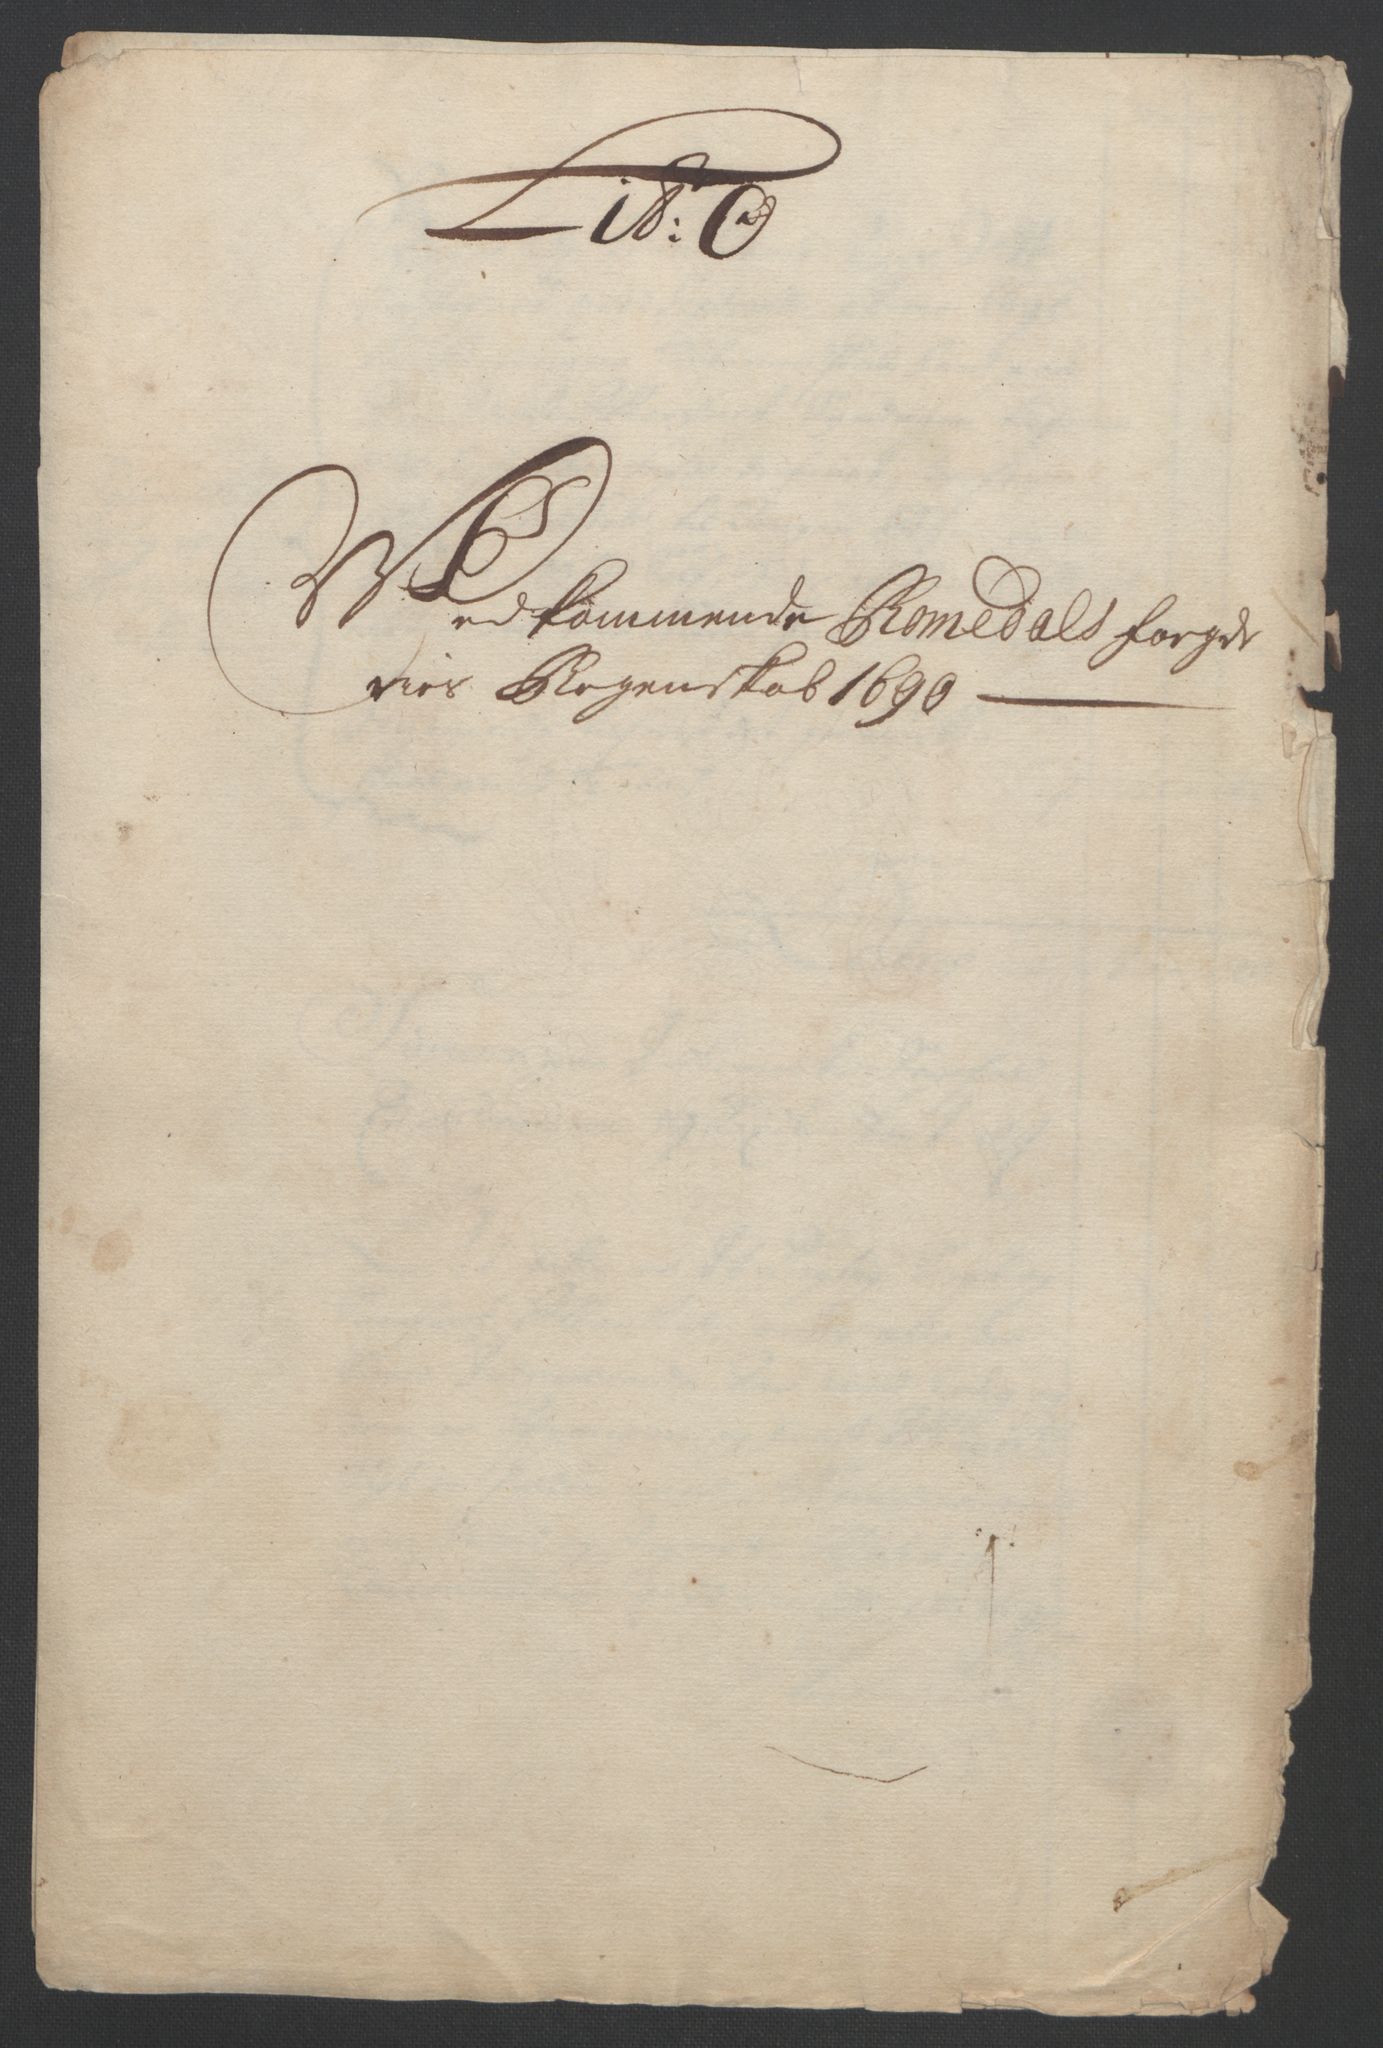 Lit: C
Wedkommende Romsdals forge
ries Regenskab 1690